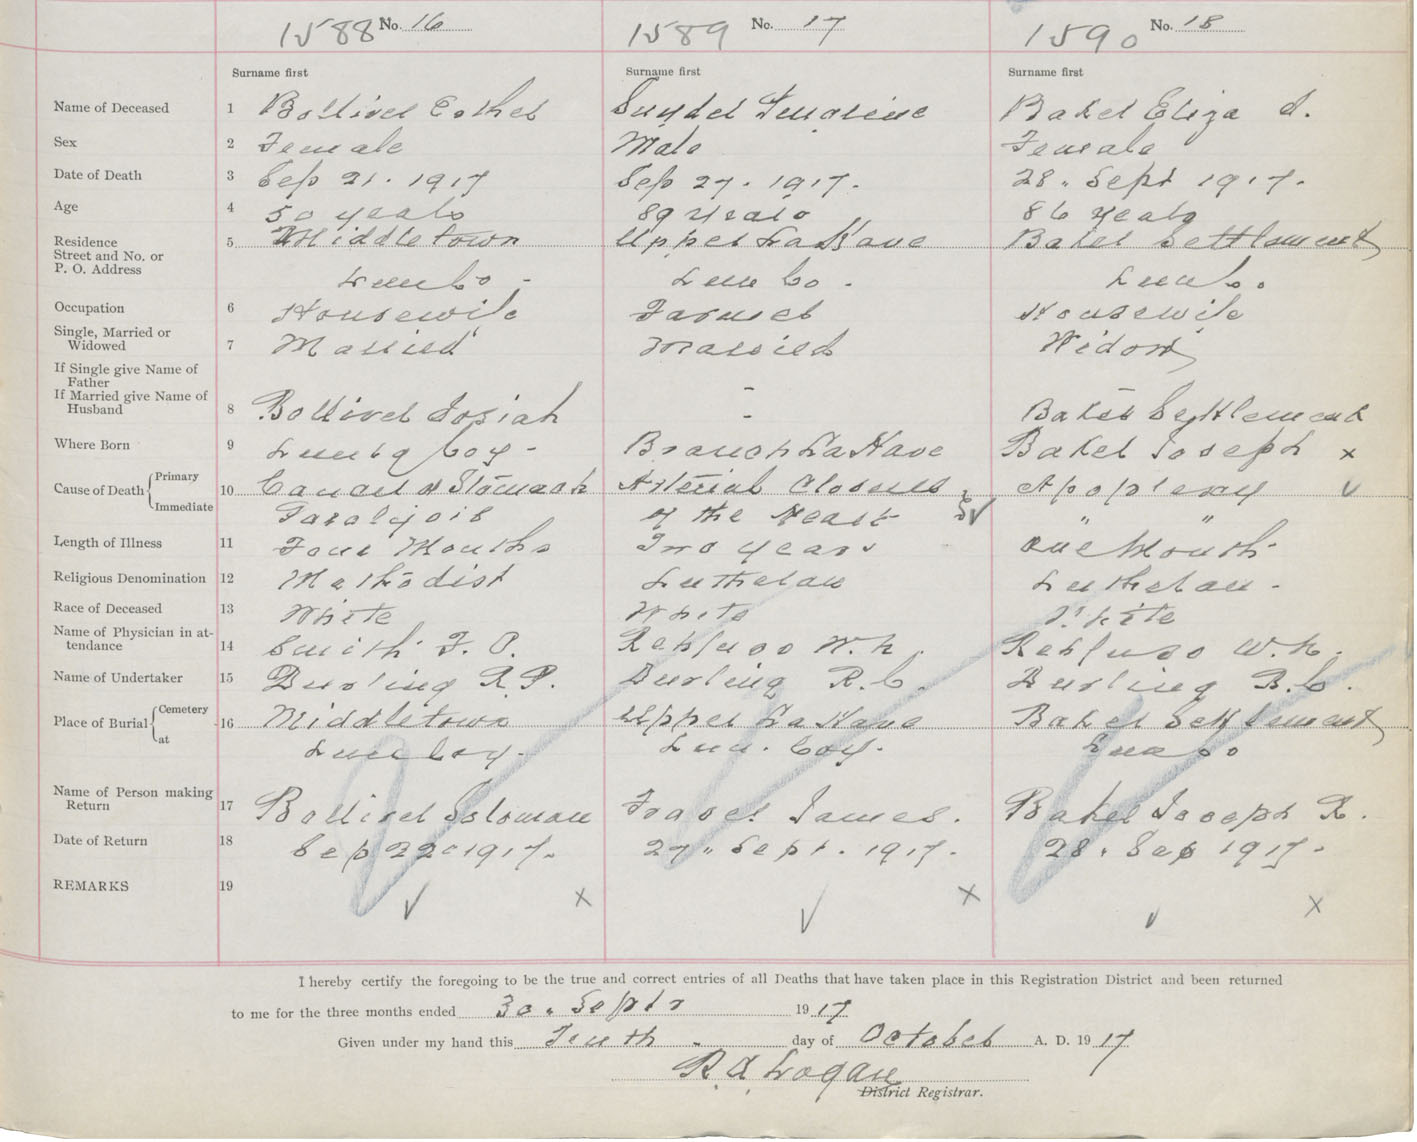 1588 No. 16
1589 No. 17
1590 No. 18
Surname first
Surname first
Surname first
Name of Deceased 1 Bollivel Esther
Baker Eliza A.
Sex 2 Female
Male
Female
Date of Death 3 Sep 21. 1917
Sep 27. 1917.
28. Sept 1917.
Age 4 50 years
89 years
86 years
Residence
Street and No. or
P. O. Address
5 Middletown
Lun Co.
Upper LaHave
Lun Co.
Baker Settlement
Lun Co.
Occupation 6 Housewife
Farmer
Housewife
Single, Married or
Widowed 7 Married
Married
Widow
If Single give Name of
Father
If Married give Name of
Husband 8 Bollivel Josiah
-
-
Baker Settlement
Where Born 9 Lunbg Coy -
Branch LaHave
Baker Joseph x
Cause of Death { Primary
Immediate
10 Cancer of Stomach
Paralysis
Arterial Closure
of the Heart
Apoplexy
" "
Length of Illness 11 Four Months
Two years
One Month
Religious Denomination 12 Methodist
Lutheran
Lutheran -
Race of Deceased 13 White
White
White
Name of Physician in at-
tendance 14 Smith F. P.
Rehfuss W. N.
Rehfuss W. N.
Name of Undertaker 15 Durling R. P.
Durling R. C.
Durling B. C.
Place of Burial { Cemetery
at
16 Middletown
Lun Coy -
Upper LaHave
Lun. Coy.
Baker Settlement
Lun Co
Name of Person making
Return 17 Bollivel Soloman
James.
Baker Joseph R.
Date of Return 18 Sep 22 1917.
27" Sept. 1917.
28. Sep 1917.
REMARKS 19
x
x
x
I hereby certify the foregoing to be the true and correct entries of all Deaths that have taken place in this Registration District and been returned
to me for the three months ended 30. Septr 1917
Given under my hand this Tenth day of October A. D. 1917
R A Logan
District Registrar.